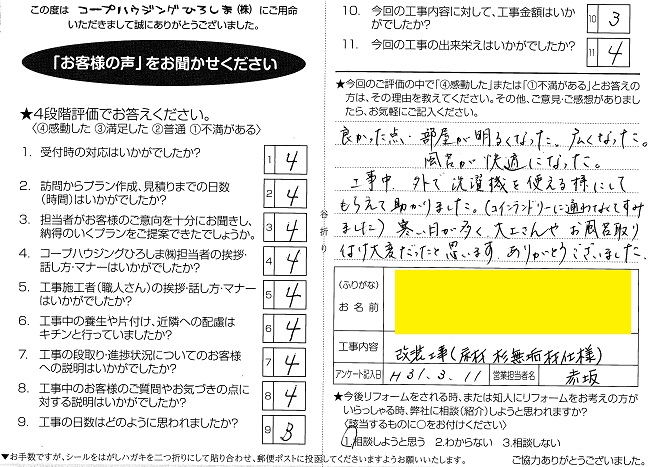 この度は コープハウジングひろしま(株) にご用命
いただきまして誠にありがとうございました。
「お客様の声」をお聞かせください
★4段階評価でお答えください。
〈④感動した ③満足した ②普通 ①不満がある〉
1. 受付時の対応はいかがでしたか? 1 4
2. 訪問からプラン作成、見積りまでの日数
(時間)はいかがでしたか? 2 4
3. 担当者がお客様のご意向を十分にお聞きし、
納得のいくプランをご提案できたでしょうか。 3 4
4. コープハウジングひろしま㈱担当者の挨拶・
話し方・マナーはいかがでしたか? 4 4
5. 工事施工者(職人さん)の挨拶・話し方・マナー
はいかがでしたか? 5 4
6. 工事中の養生や片付け、近隣への配慮は
キチンと行っていましたか? 6 4
7. 工事の段取り・進捗状況についてのお客様
への説明はいかがでしたか? 7 4
8. 工事中のお客様のご質問やお気づきの点に
対する説明はいかがでしたか? 8 4
9. 工事の日数はどのように思われましたか? 9 3
▼お手数ですが、シールをはがしハガキを二つ折りにして貼り合わせ、郵便ポストに投函してくださいますようお願いいたします。
谷折り
10. 今回の工事内容に対して、工事金額はいか
がでしたか? 10 3
11. 今回の工事の出来栄えはいかがでしたか? 11 4
★今回のご評価の中で「④感動した」または「①不満がある」とお答え
の方は、その理由を教えてください。その他、ご意見・ご感想がありまし
たら、お気軽にご記入ください。
良かった点・部屋が明るくなった。広くなった。
風呂が快適になった。
工事中、外で洗濯機を使える様にして
もらえて助かりました。(コインランドリーに通わなくてすみ
ました) 寒い日が多く、大工さんやお風呂取り
付け大変だったと思います。ありがとうございました。
(ふりがな)
お名前
工事内容 改装工事(床材 杉無垢材仕様)
アンケート記入日 H31.3.11 営業担当者名 赤坂
★今後リフォームをされる時、または知人にリフォームをお考えの方が
いらっしゃる時、弊社に相談(紹介)しようと思われますか?
〈該当するものに○をお付けください〉
1.相談しようと思う 2.わからない 3.相談しない
ご協力ありがとうございました。